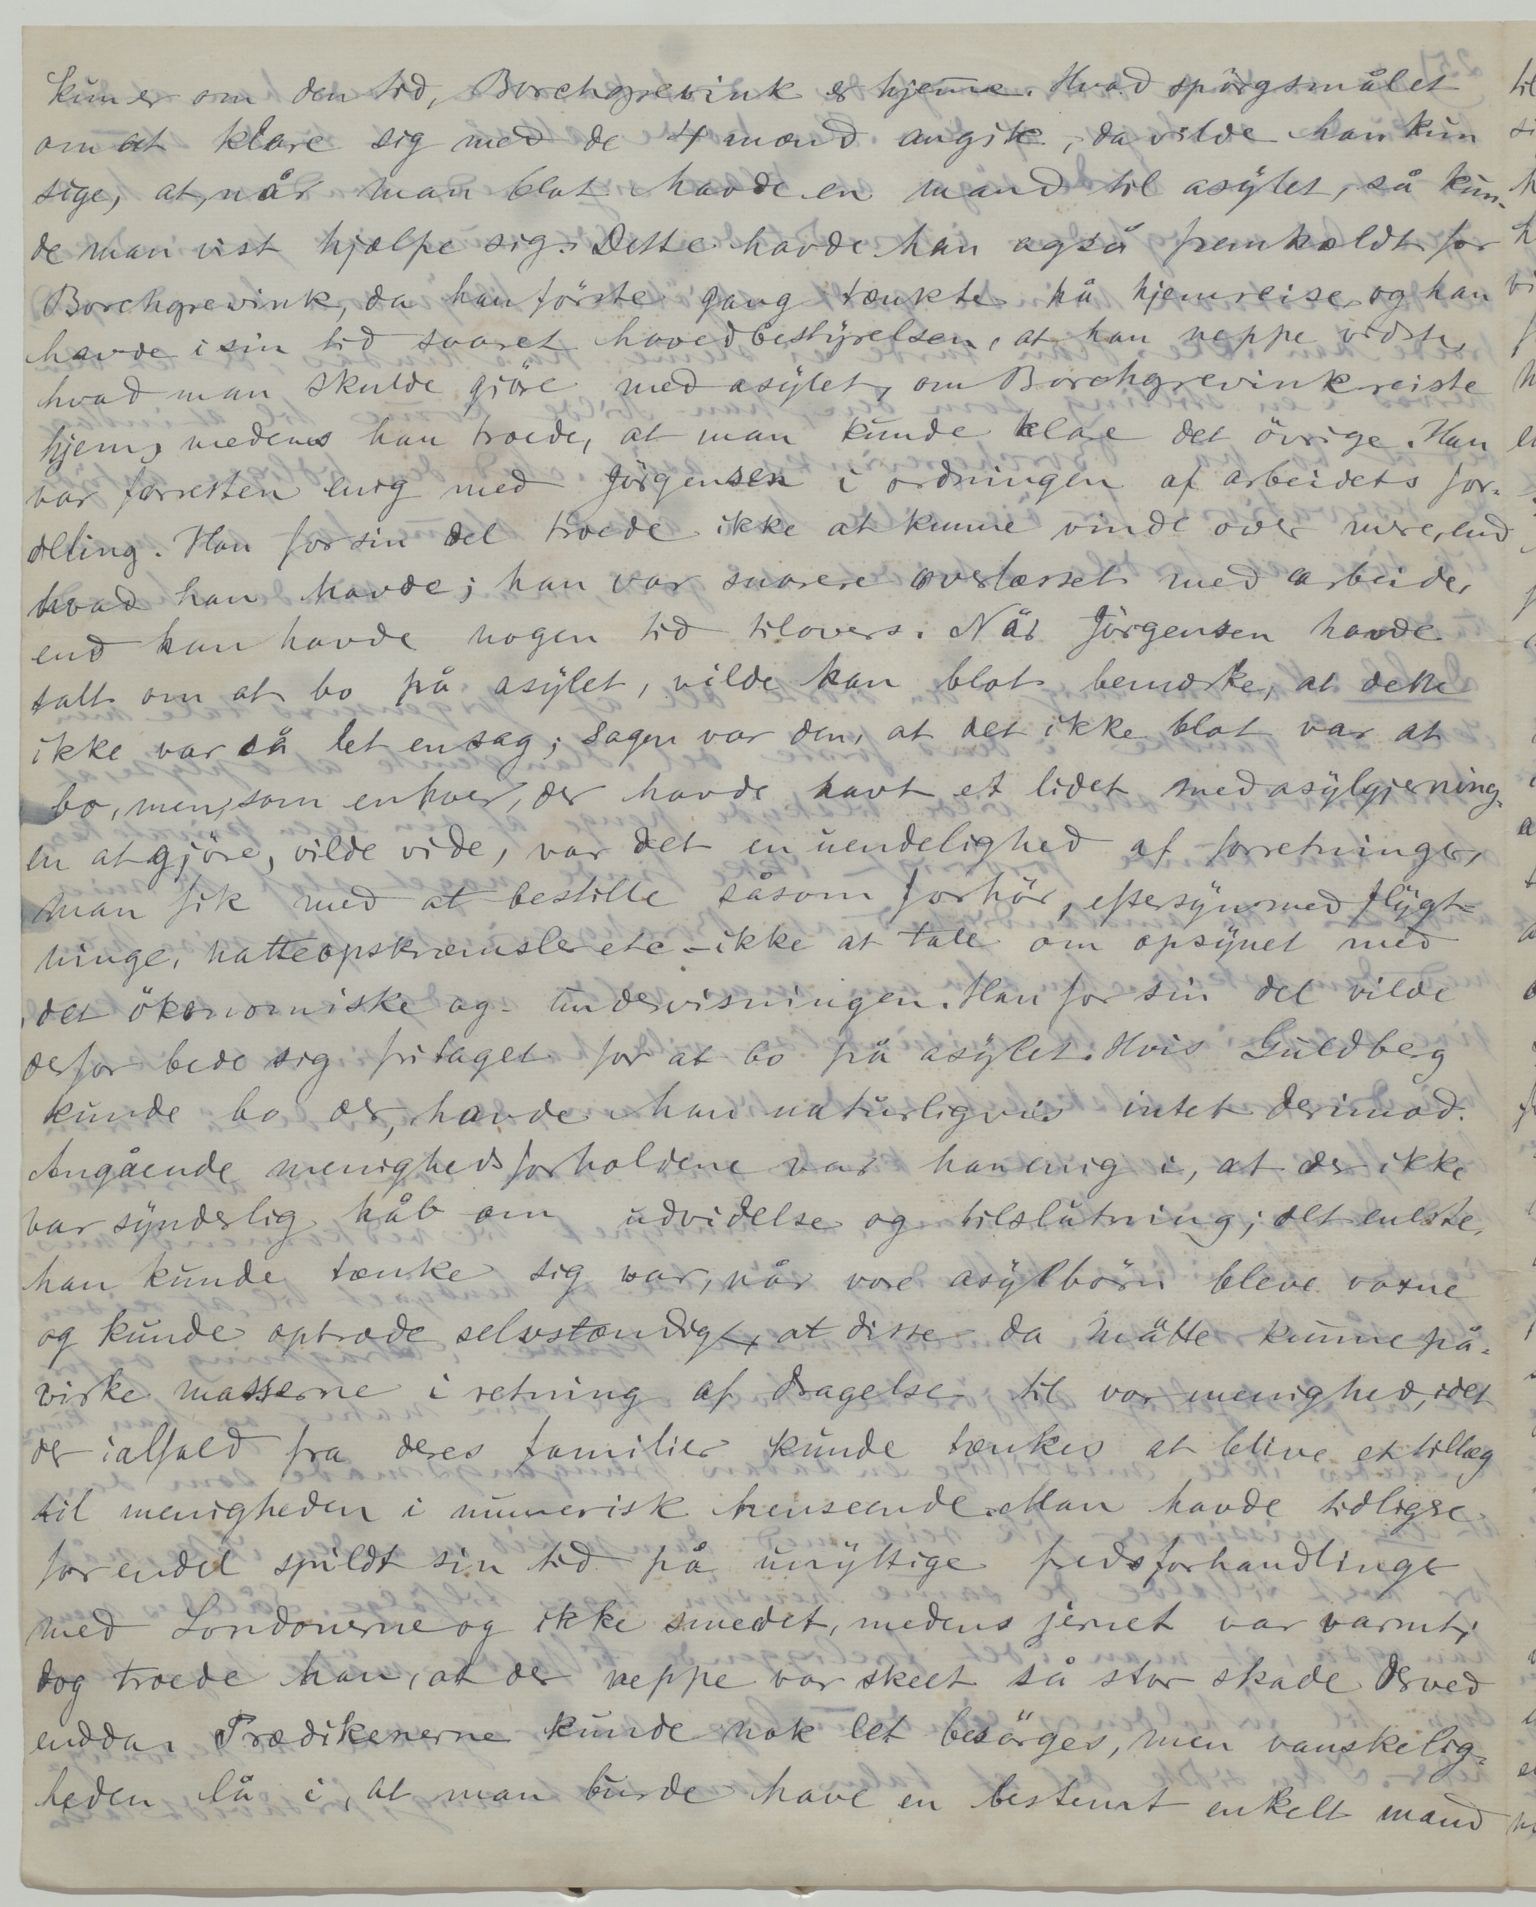 kun er om den tid, Borchgrevink er hjemme. Hvad spörgsmålet
om at klare sig med de 4 mænd angik, da vilde han kun
sige, at, når man blot havde en mand til asylet, så kun-
de man vist hjælpe sig. Dette havde han også fremholdt for
Borchgrevink, da han förste gang tænkte på hjemreise, og han
havde i sin tid svaret hovedbestyrelsen, at han neppe vidste,
hvad man skulde gjöre med asylet, om Borchgrevink reiste
hjem, medens han troede, at man kunde klare det övrige. Han
var forresten enig med Jörgensen i ordningen af arbeidets for-
deling. Han for sin del troede ikke at kunne vinde over mere, end
hvad han havde; han var snarere overlæsset med arbeide,
end han havde nogen tid tilovers. Når Jörgensen havde
talt om at bo på asylet, vilde han blot bemærke, at dette
ikke var så let en sag; sagen var den, at det ikke blot var at
bo, men, som enhver, der havde havt et lidet med asylgjerning-
en at gjöre, vilde vide, var det en uendelighed af forretninger,
man fik med at bestille såsom forhör, eftersyn med flygt-
ninge, natteopskræmsler etc - ikke at tale om opsynet med
det ökonomiske og undervisningen. Han for sin del vilde
derfor bede sig fritaget for at bo på asylet. Hvis Guldberg
kunde bo der, havde han naturligvis intet derimod.
Angående menighedsforholdene var han enig i, at der ikke
var synderlig håb om udvidelse og tilslutning; det eneste,
han kunde tænke sig var, når vore asylbörn bleve voxne
og kunde optræde selvstændigt, at disse da måtte kunne på-
virke masserne i retning af dragelse til vor menighed, idet
der ialfald fra deres familier kunde tænkes at blive et tillæg
til menigheden i numerisk henseende. Man havde tidligere
for endel spildt sin tid på unyttige fredsforhandlinger
med Londonerne og ikke smedet, medens jernet var varmt;
dog troede han, at der neppe var skeet så stor skade derved
endda. Prædikenerne kunde nok let besörges, men vanskelig-
heden lå i, at man burde have en bestemt enkelt mand